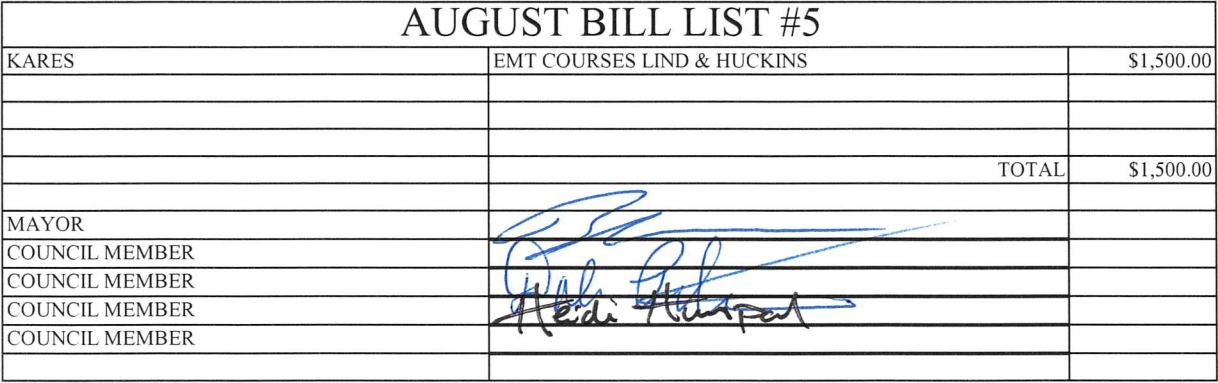 AUGUST BILL LIST #5
KARES EMT COURSES LIND & HUCKINS $1,500.00
TOTAL $1,500.00
MAYOR
COUNCIL MEMBER
COUNCIL MEMBER
COUNCIL MEMBER Heidi
COUNCIL MEMBER